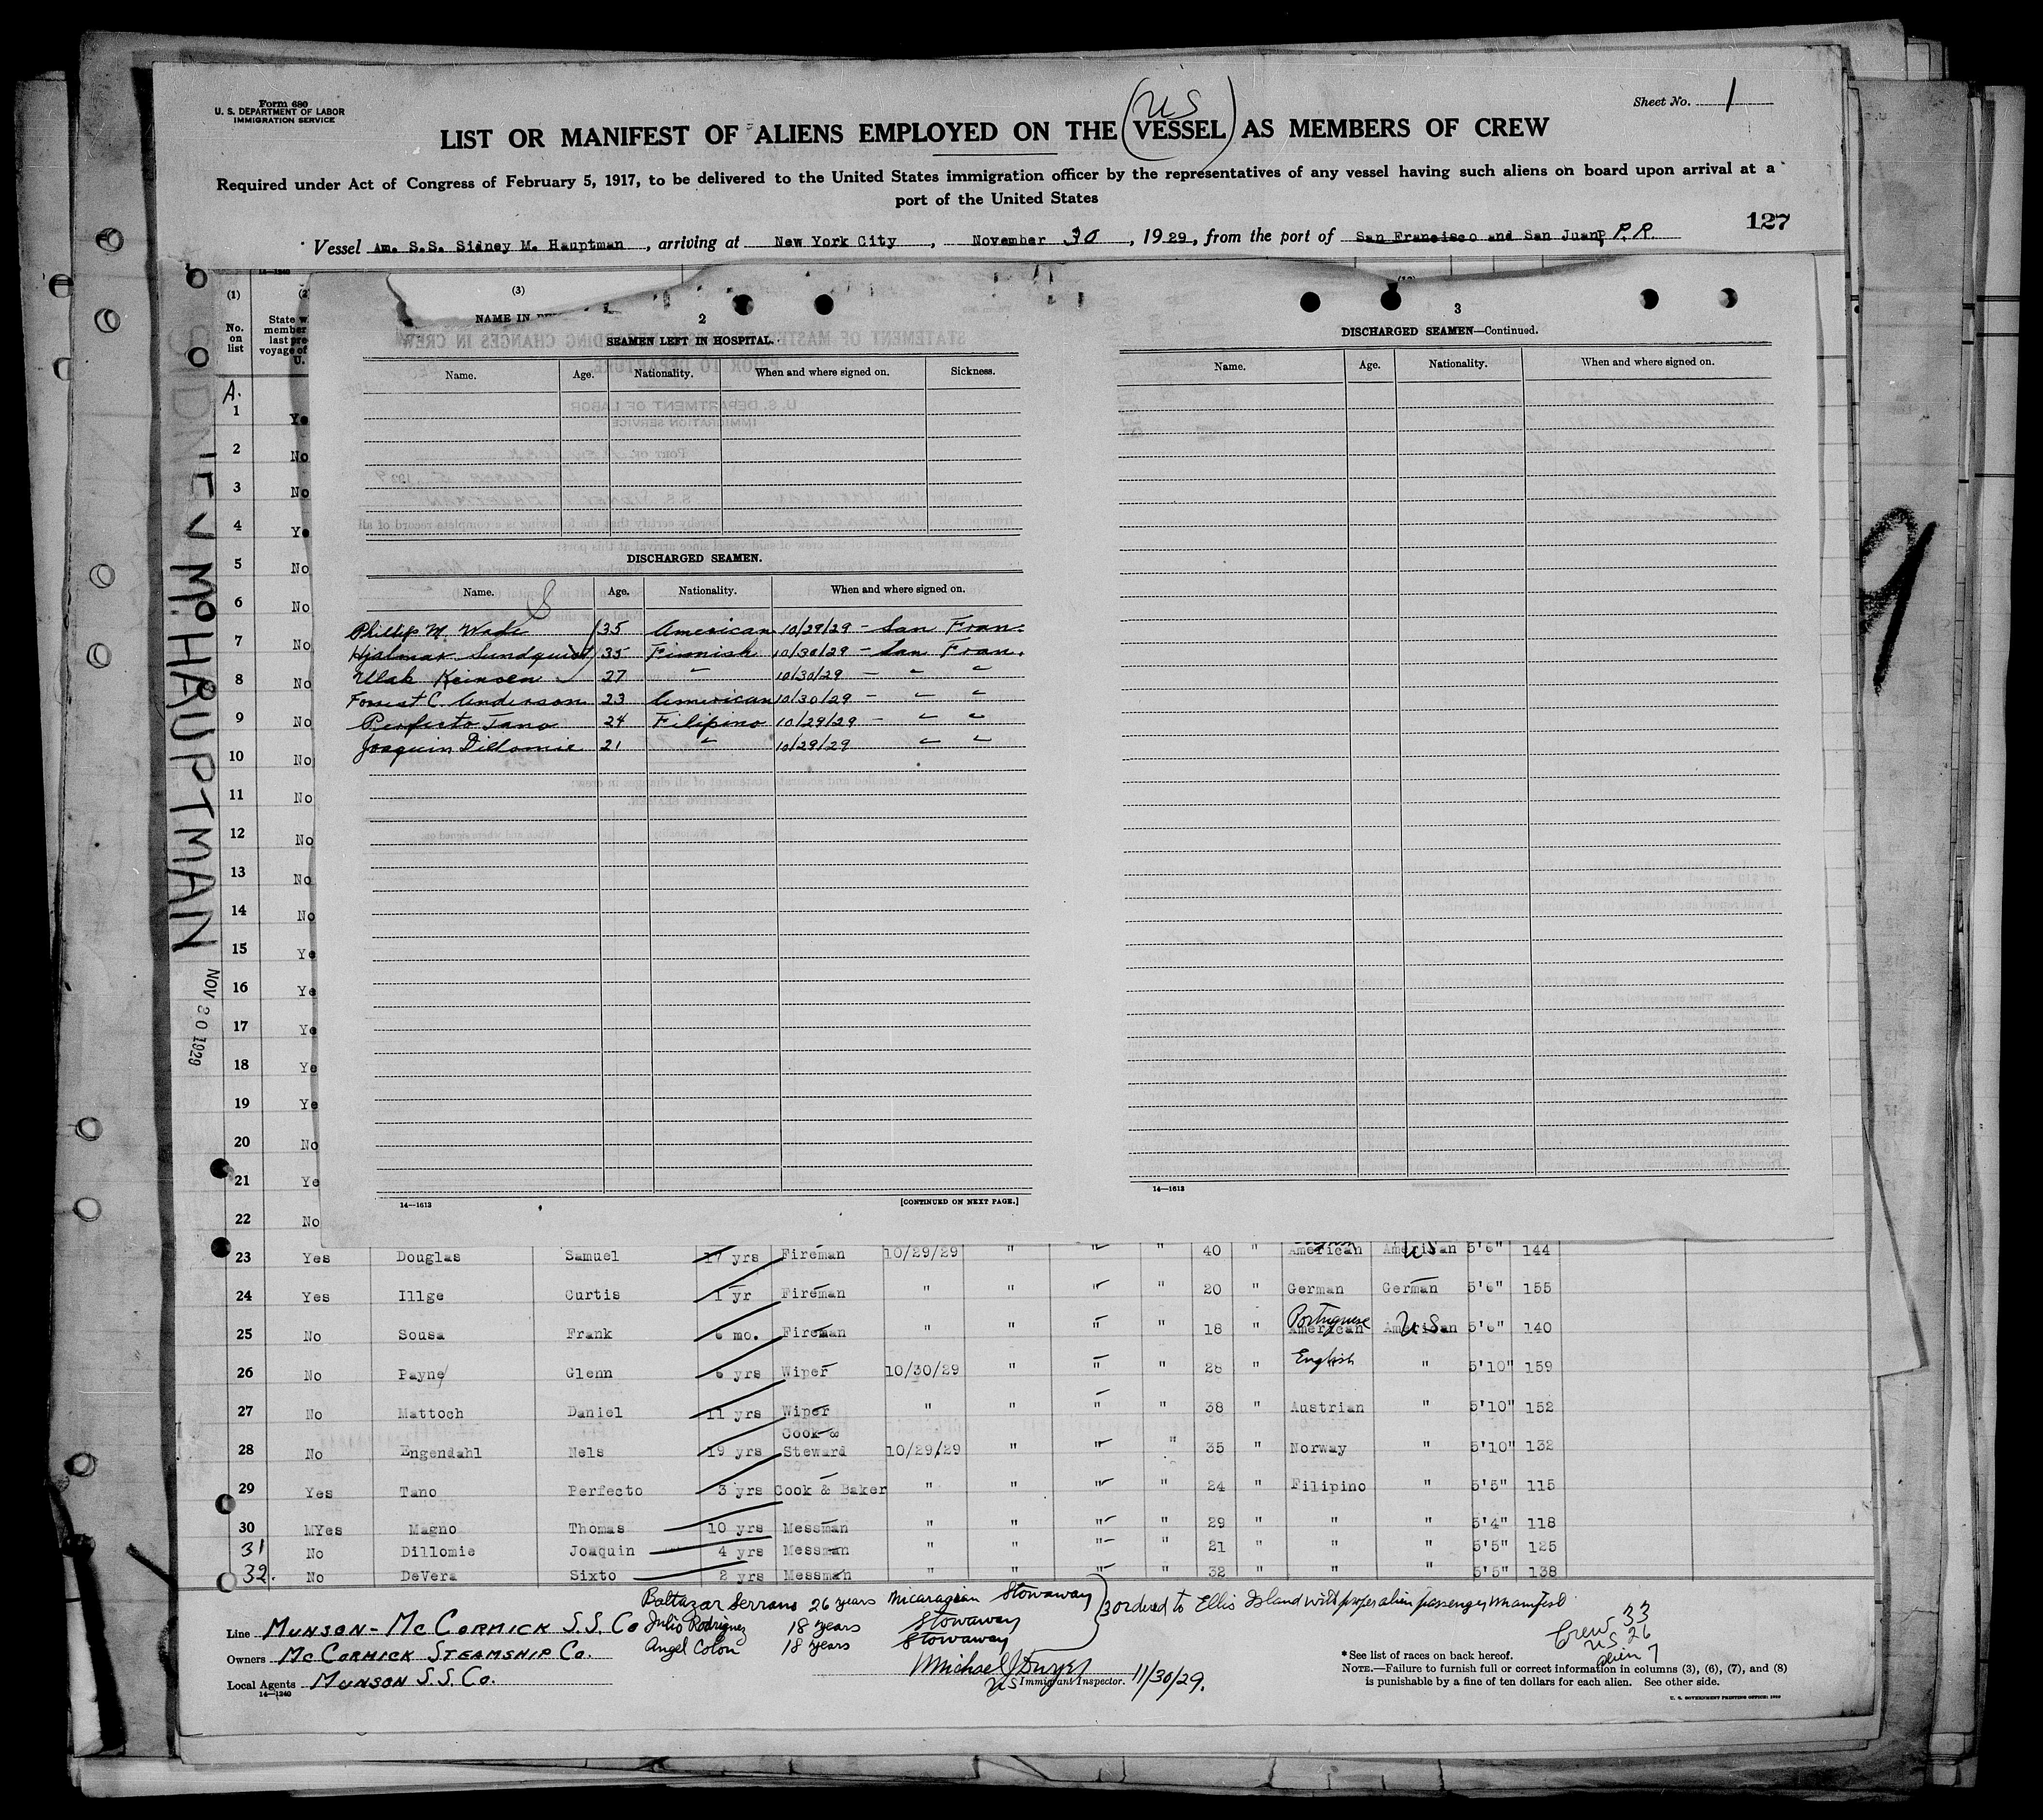 Form 680
U. S. DEPARTMENT OF LABOR
IMMIGRATION SERVICE
Sheet No. 1
US
LIST OR MANIFEST OF ALIENS EMPLOYED ON THE (VESSEL) AS MEMBERS OF CREW
Required under Act of Congress of February 5, 1917, to be delivered to the United States immigration officer by the representatives of any vessel having such aliens on board upon arrival at a
port of the United States
127
Vessel Am. S.S. Sidney M. Hauptman, arriving at New York City, November 30, 1929, from the port of San Francisco and San Juan, P.R.
14—1240
(1) (3)
No. on list
NAME IN
2
SEAMEN LEFT IN HOSPITAL.
Name. Age. Nationality. When and where signed on. Sickness.
3
DISCHARGED SEAMEN—Continued.
Name. Age. Nationality. When and where signed on.
A.
1 Ye
2 No
3 No
4 Ye
5 No
6 No
7 No
8 No
9 No
10 No
11 No
12 No
13 No
14 No
15 Ye
16 Ye
17 Ye
18 Ye
19 Ye
20 No
21 Ye
22 No
SIDNEY M. HAUPTMAN
NOV 30 1929
DISCHARGED SEAMEN.
Name. Age. Nationality. When and where signed on.
Phillip M. Wade 35 American 10/29/29 – San Fran.
Hjalmar Sundquist 35 Finnish 10/30/29 – San Fran.
Ullah Keinsen 27 " 10/30/29 – " "
Forrest C. Anderson 23 American 10/30/29 – " "
Perfecto Tano 24 Filipino 10/29/29 – " "
Joaquin Dillomie 21 " 10/29/29 " "
14—1613 [CONTINUED ON NEXT PAGE.]
14—1613
23 Yes Douglas Samuel 17 yrs Fireman 10/29/29 " " " 40 " American American US 5'6" 144
24 Yes Illge Curtis 1 yr Fireman " " " " 20 " German German 5'6" 155
25 No Sousa Frank 6 mo. Fireman " " " " 18 " American Portuguese American US 5'6" 140
26 No Payne Glenn 6 yrs Wiper 10/30/29 " " " 28 " English " 5'10" 159
27 No Mattoch Daniel 11 yrs Wiper " " " " 38 " Austrian " 5'10" 152
28 No Engendahl Nels 19 yrs Cook & Steward 10/29/29 " " " 35 " Norway " 5'10" 132
29 Yes Tano Perfecto 3 yrs Cook & Baker " " " " 24 " Filipino " 5'5" 115
30 MYes Magno Thomas 10 yrs Messman " " " " 29 " " " 5'4" 118
31 No Dillomie Joaquin 4 yrs Messman " " " " 21 " " " 5'5" 125
32. No DeVera Sixto 2 yrs Messman " " " " 32 " " " 5'5" 138
Baltazar Serrano 26 years Nicaragian Stowaway
Julio Rodriguez 18 years Stowaway
Angel Colon 18 years Stowaway
3 ordered to Ellis Island with proper alien passenger manifest
Line MUNSON-McCORMICK S.S. Co
Owners McCORMICK STEAMSHIP Co.
Local Agents MUNSON S.S. Co.
14—1240
Michael J Dwyer 11/30/29.
US Immigrant Inspector.
Crew 33
US 26
alien 7
* See list of races on back hereof.
NOTE.—Failure to furnish full or correct information in columns (3), (6), (7), and (8)
is punishable by a fine of ten dollars for each alien. See other side.
U. S. GOVERNMENT PRINTING OFFICE: 1929
9